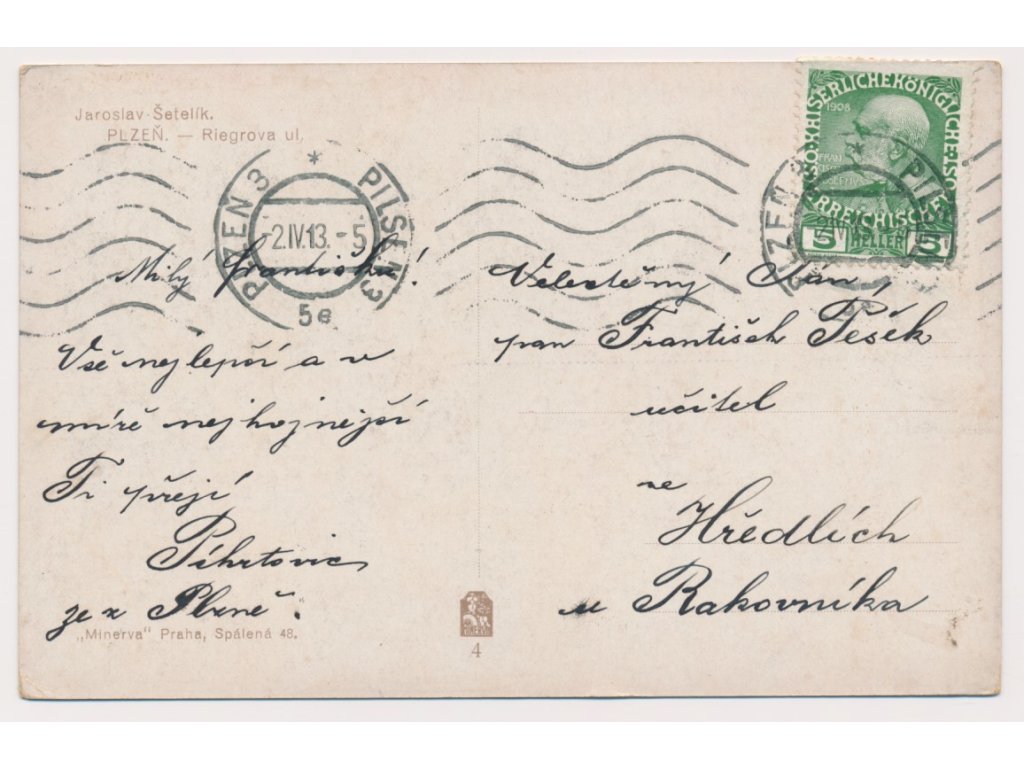 Jaroslav Šetelík.
PLZEŇ. — Riegrova ul.
PLZEN 3 * PILSEN 3
-2.IV.13.-5
5e
KAISERLICHEKÖNIGLICHE
1908
ERREICHISCHE
5 HELLER 5
PLZEN 3 * PILSEN
Milý Františku!
Vše nejlepší a v
míře nejhojnější
Ti přejí
Píhrtovic
ze z Plzně.
Veleděčný Pán,
pan František Pešek
učitel
ve
Hředlích
u Rakovníka
„Minerva" Praha, Spálená 48.
4